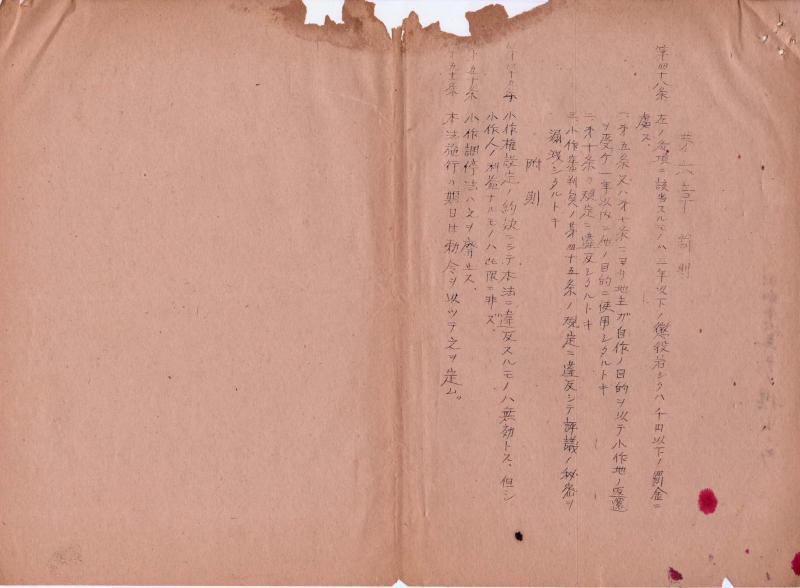 第六章 罰則
第四十八条 左ノ各項ニ該当スルモノハ二年以下ノ懲役若シクハ千円以下ノ罰金ニ
処ス、
一、第五条又ハ第七条ニヨリ地主ガ自作ノ目的ヲ以テ小作地ノ返還
ヲ受ケ一年以内ニ他ノ目的ニ使用シタルトキ
二、第十条ノ規定ニ違反シタルトキ
三、小作審判員ノ第四十五条ノ規定ニ違反シテ評議ノ秘密ヲ
漏洩シタルトキ
附則
条 小作権設定ノ約款ニシテ本法ニ違反スルモノハ無効トス、但シ
小作人ノ利益ナルモノハ此限ニ非ズ、
五十条 小作調停法ハ之ヲ廃止ス、
五十条 本法施行ノ期日ハ勅令ヲ以ツテ之ヲ定ム。